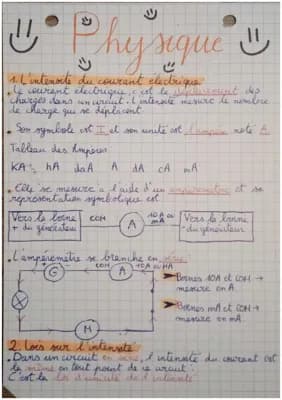 Physique
1. L'intensité du courant électrique
. Le courant électrique, c'est le déplacement des
charges dans un circuit. L'intensité mesure le nombre
de charge qui se déplacent.
. Son symbole est I et son unité est l'ampère noté A.
Tableau des Ampères
KA hA daA A dA cA mA
. Elle se mesure à l'aide d'un ampèremètre et sa
représentation symbolique est
Vers la borne + du générateur
COM
A
10A ou mA
Vers la borne - du générateur
. L'ampèremètre se branche en série
G
COM
A
10A ou mA
Bornes 10A et COM →
mesure en A.
Bornes mA et COM →
mesure en mA.
M
2. Lois sur l'intensité
. Dans un circuit en série, l'intensité du courant est
la même en tout point de ce circuit.
C'est la loi d'unicité de l'intensité